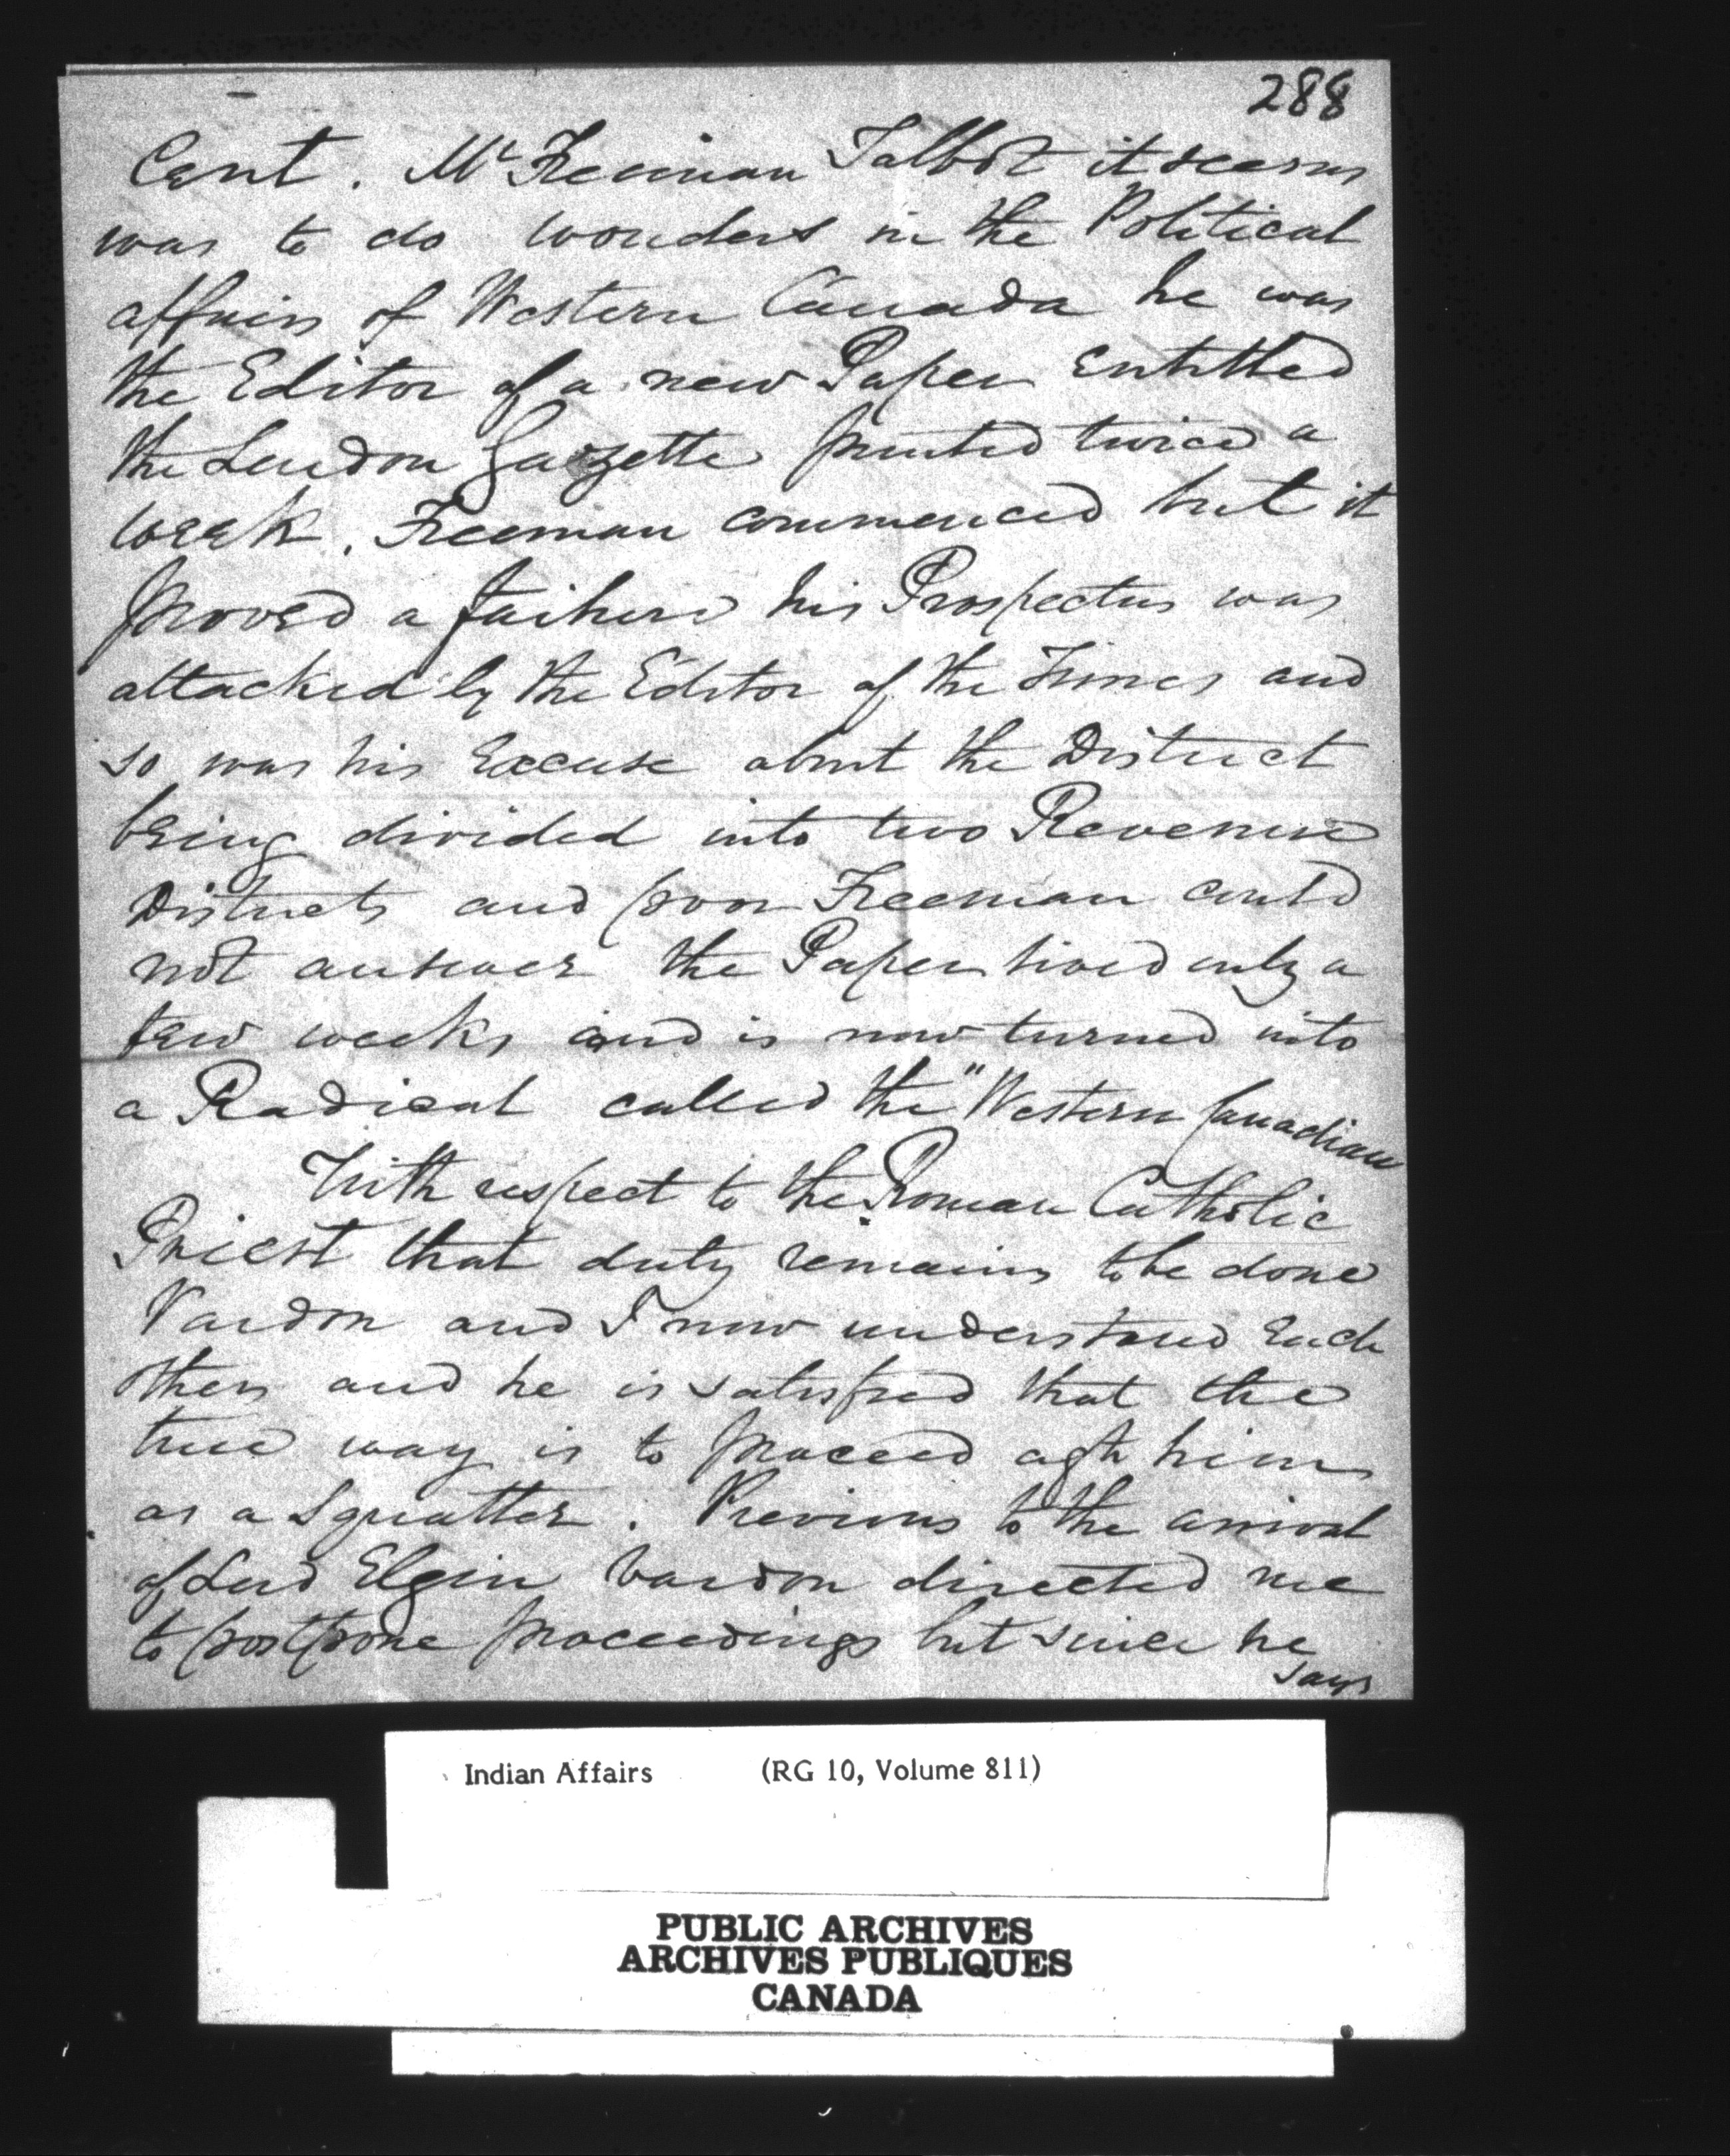 288
Cent. Mr Freeman Talbot it seems
was to do wonders in the Political
affairs of Western Canada he was
the Editor of a new Paper Entitled
the London Gazette printed twice a
week. Freeman commenced but it
proved a failure his Prospectus was
attacked by the Editor of the Times and
so was his Excuse about the District
being divided into two Revenue
Districts and poor Freeman could
not answer the Paper lived only a
few weeks and is now turned into
a Radical called the "Western Canadian
With respect to the Roman Catholic
Priest that duty remains to be done
Vardon and I now understand Each
other and he is satisfied that the
true way is to proceed agst him
as a Squatter. Previous to the arrival
of Lord Elgin Vardon directed me
to postpone proceedings but since he
says
Indian Affairs (RG 10, Volume 811)
PUBLIC ARCHIVES
ARCHIVES PUBLIQUES
CANADA